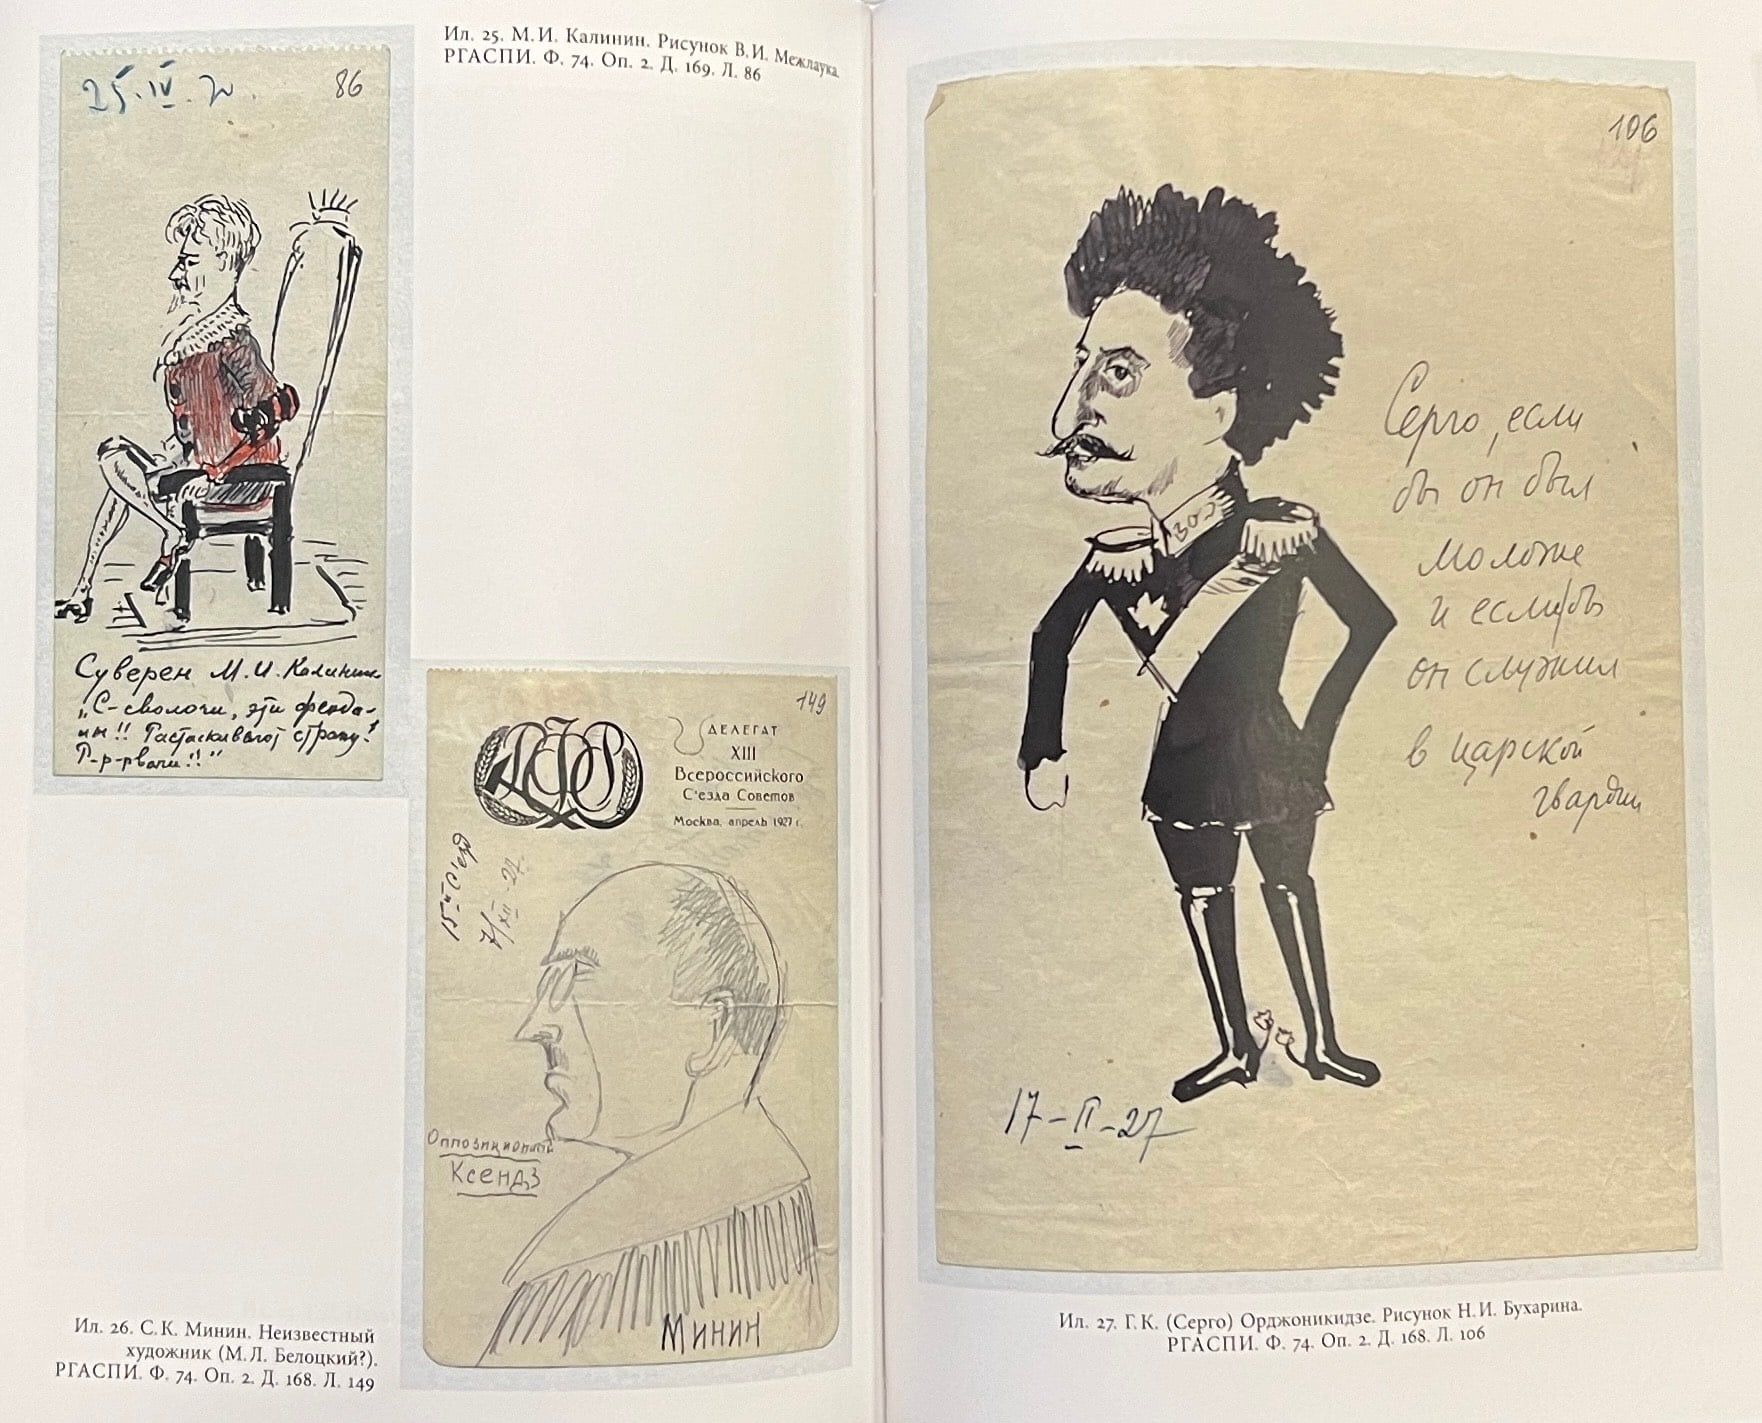 Ил. 25. М.И. Калинин. Рисунок В.И. Межлаука.
РГАСПИ. Ф. 74. Оп. 2. Д. 169. Л. 86
25.IV.
86
Суверен М.И. Калинин
„С-сволочи, эти феода-
лы!! Растаскивают страну!
Р-р-рвачи!!"
149
ДЕЛЕГАТ
XIII
Всероссийского
С'езда Советов
Москва, апрель 1927 г.
15-й С'езд
7/XII-27.
Оппозиционный
Ксендз
Минин
Ил. 26. С.К. Минин. Неизвестный
художник (М.Л. Белоцкий?).
РГАСПИ. Ф. 74. Оп. 2. Д. 168. Л. 149
106
Серго, если
бы он был
моложе
и если бы
он служил
в царской
гвардии
17-II-27
Ил. 27. Г.К. (Серго) Орджоникидзе. Рисунок Н.И. Бухарина.
РГАСПИ. Ф. 74. Оп. 2. Д. 168. Л. 106